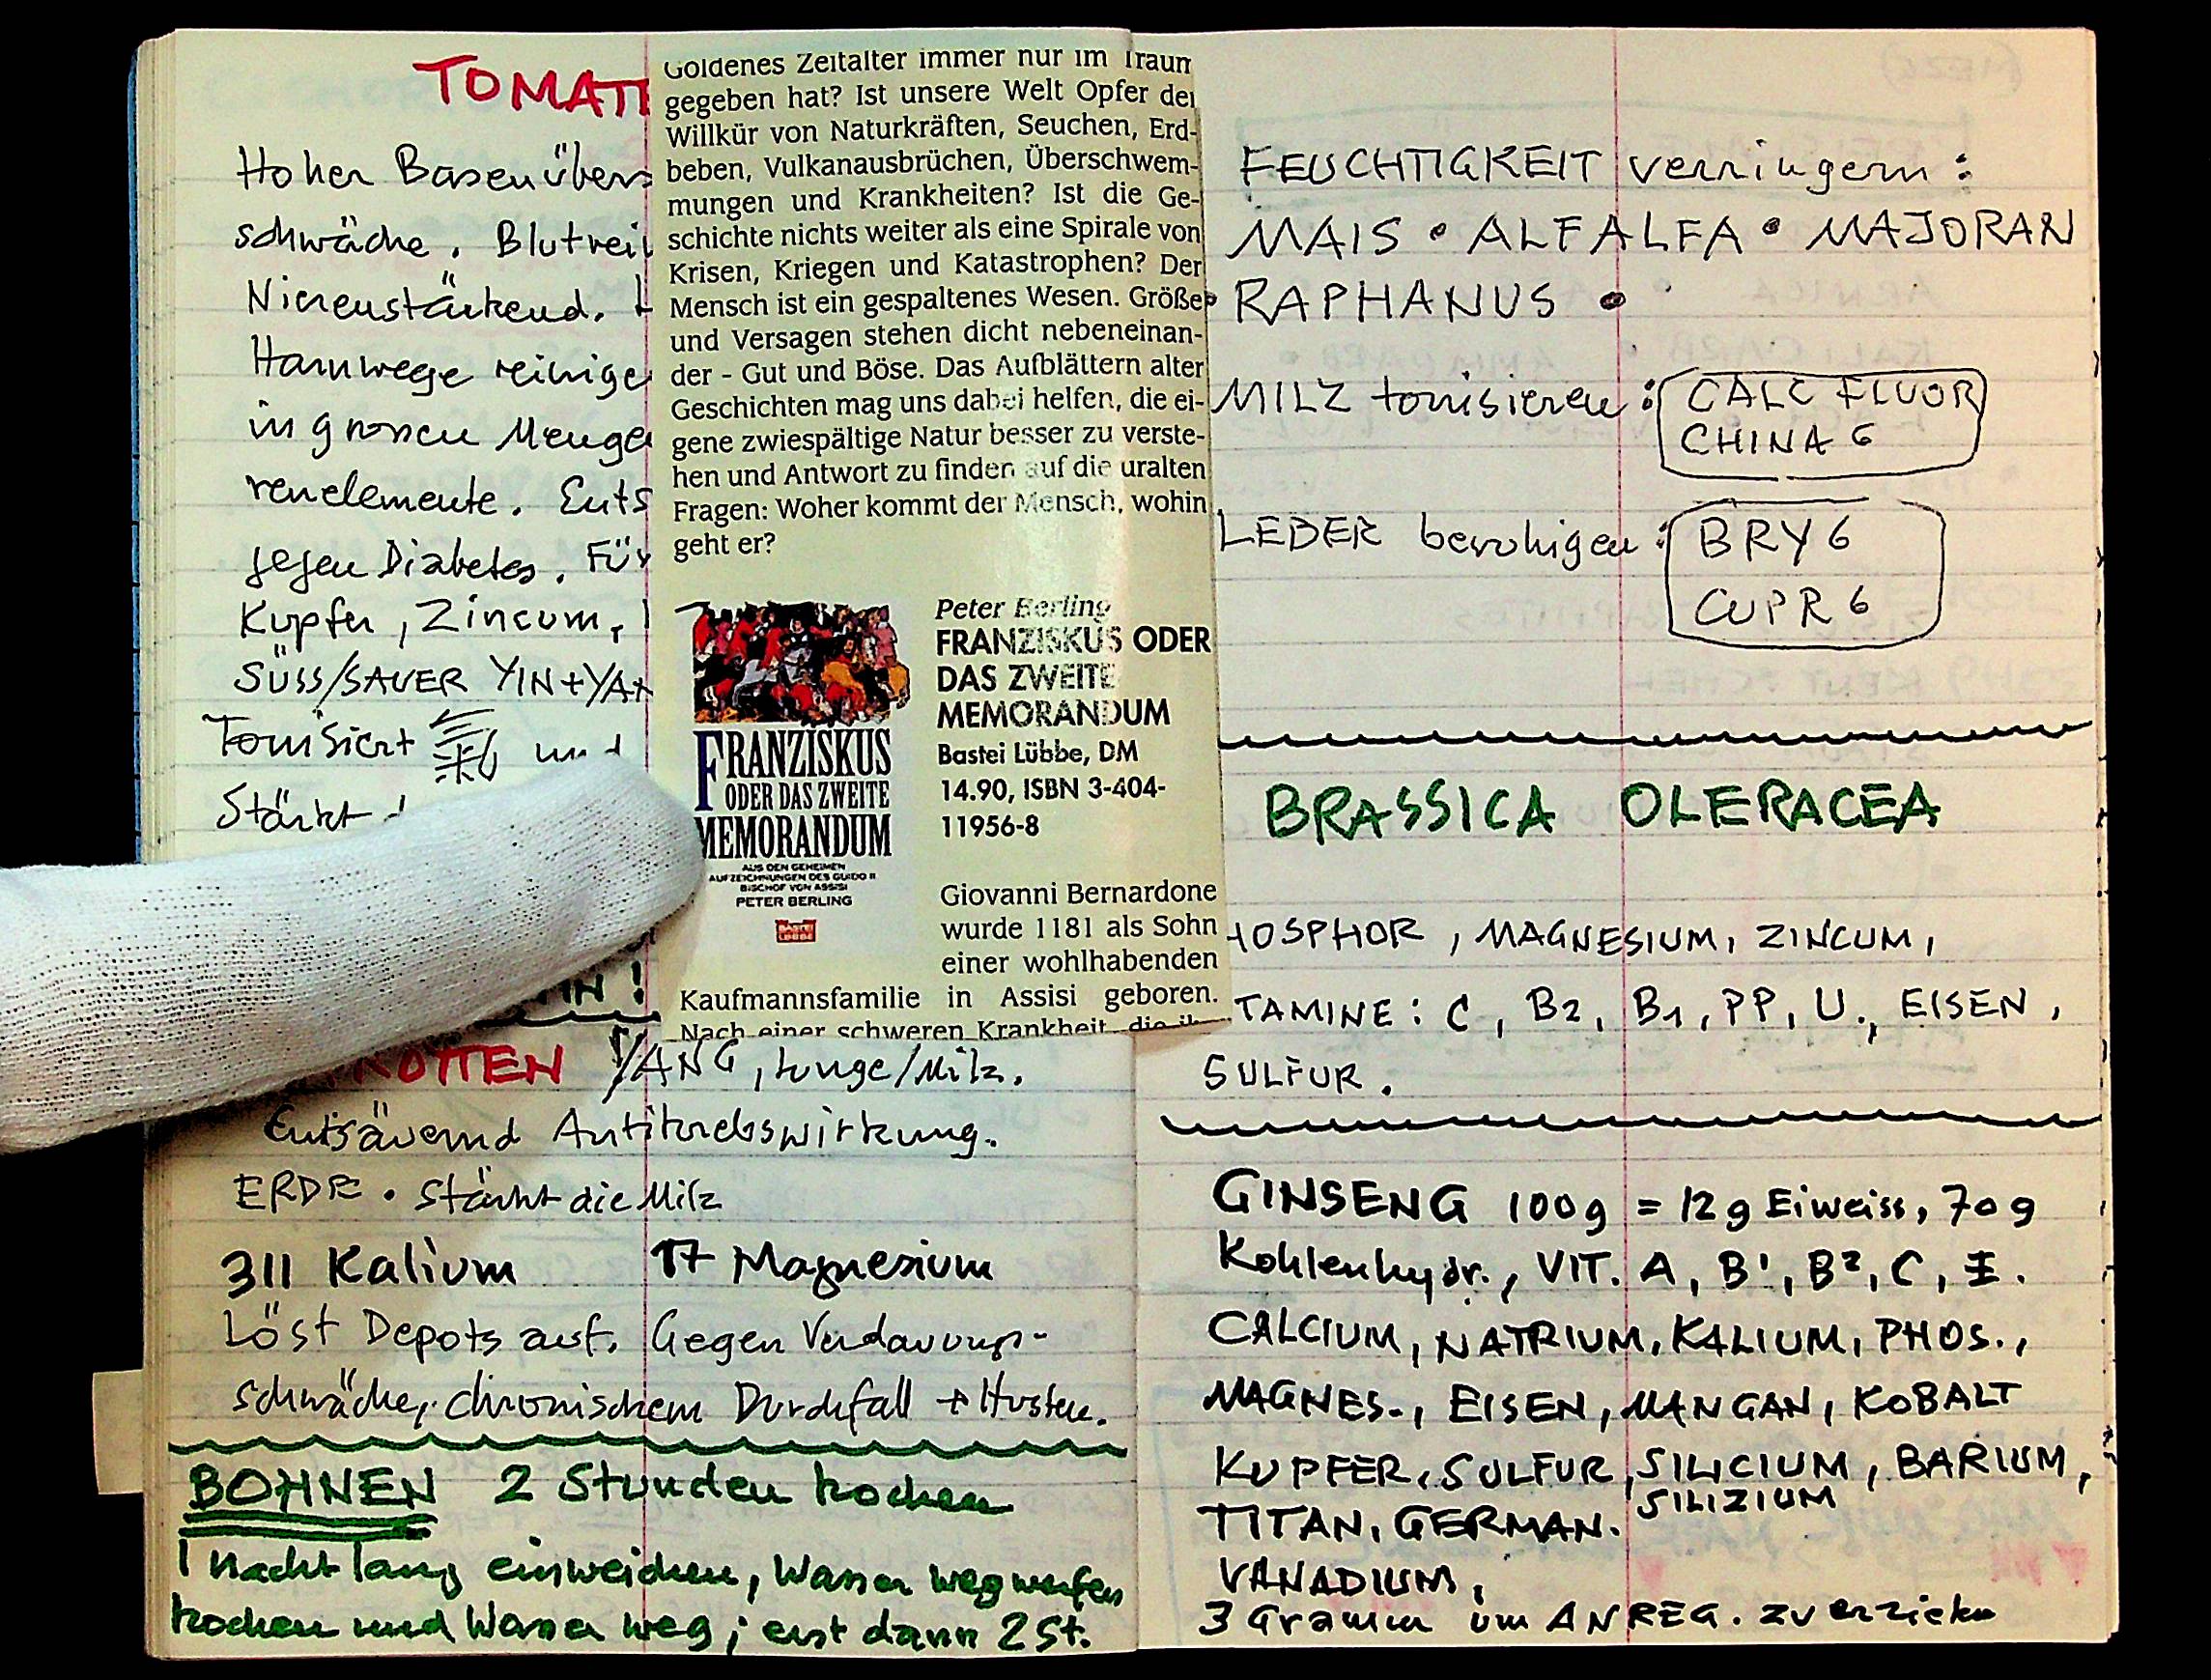 TOMAT
Hoher Basenübers
schwäche. Blutrei
Nierenstärkend.
Harnwege reinige
in grossen Menge
renelemente. Ents
gegen Diabetes. Für
Kupfer, Zincum,
SÜSS/SAUER YIN+YA
Tonisiert 氣 und
Stärkt
!
ROTTEN YANG, Lunge/Milz.
Entsäuernd Antikrebswirkung.
ERDE. Stärkt die Milz
311 Kalium 17 Magnesium
Löst Depots auf. Gegen Verdauungs-
schwäche, chronischem Durchfall + Husten.
BOHNEN 2 Stunden kochen
1 Nacht lang einweichen, Wasser wegwerfen
kochen und Wasser weg; erst dann 2 St.
Goldenes Zeitalter immer nur im Traum
gegeben hat? Ist unsere Welt Opfer der
Willkür von Naturkräften, Seuchen, Erd-
beben, Vulkanausbrüchen, Überschwem-
mungen und Krankheiten? Ist die Ge-
schichte nichts weiter als eine Spirale von
Krisen, Kriegen und Katastrophen? Der
Mensch ist ein gespaltenes Wesen. Größe
und Versagen stehen dicht nebeneinan-
der - Gut und Böse. Das Aufblättern alter
Geschichten mag uns dabei helfen, die ei-
gene zwiespältige Natur besser zu verste-
hen und Antwort zu finden auf die uralten
Fragen: Woher kommt der Mensch, wohin
geht er?
FRANZISKUS
ODER DAS ZWEITE
MEMORANDUM
AUS DEN GEHEIMEN
AUFZEICHNUNGEN DES GUIDO II
BISCHOF VON ASSISI
PETER BERLING
BASTEI
LÜBBE
Peter Berling
FRANZISKUS ODER
DAS ZWEITE
MEMORANDUM
Bastei Lübbe, DM
14.90, ISBN 3-404-
11956-8
Giovanni Bernardone
wurde 1181 als Sohn
einer wohlhabenden
Kaufmannsfamilie in Assisi geboren.
Nach einer schweren Krankheit, die ih
FEUCHTIGKEIT verringern:
MAIS • ALFALFA • MAJORAN
• RAPHANUS •
MILZ tonisieren: CALC FLUOR
CHINA 6
LEBER beruhigen: BRY 6
CUPR 6
BRASSICA OLERACEA
HOSPHOR, MAGNESIUM, ZINCUM,
TAMINE: C, B2, B1, PP, U., EISEN,
SULFUR.
GINSENG 100g = 12g Eiweiss, 70g
Kohlenhydr., VIT. A, B1, B2, C, E.
CALCIUM, NATRIUM, KALIUM, PHOS.,
MAGNES., EISEN, MANGAN, KOBALT
KUPFER, SULFUR, SILICIUM, BARIUM,
SILIZIUM
TITAN, GERMAN.
VANADIUM,
3 Gramm um ANREG. zu erzielen